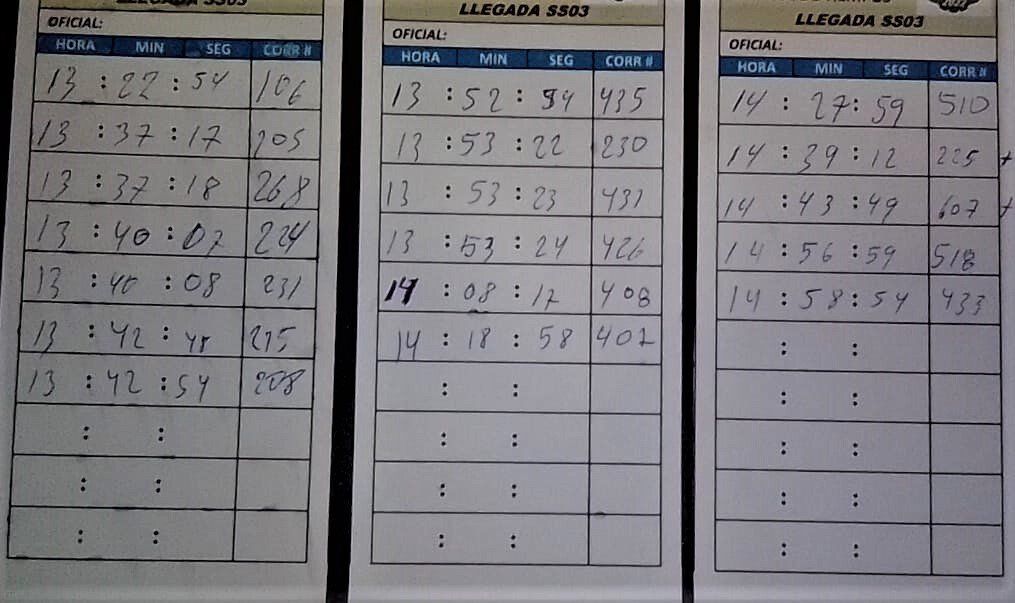 LLEGADA SS03
OFICIAL:
HORA MIN SEG CORR #
13 : 22 : 54 106
13 : 37 : 17 205
13 : 37 : 18 268
13 : 40 : 07 224
13 : 40 : 08 231
13 : 42 : 48 215
13 : 42 : 54 208
: :
: :
: :
LLEGADA SS03
OFICIAL:
HORA MIN SEG CORR #
13 : 52 : 54 435
13 : 53 : 22 230
13 : 53 : 23 431
13 : 53 : 24 426
14 : 08 : 17 408
14 : 18 : 58 402
: :
: :
: :
: :
LLEGADA SS03
OFICIAL:
HORA MIN SEG CORR #
14 : 27 : 59 510
14 : 39 : 12 225 +
14 : 43 : 49 607 +
14 : 56 : 59 518
14 : 58 : 54 433
: :
: :
: :
: :
: :